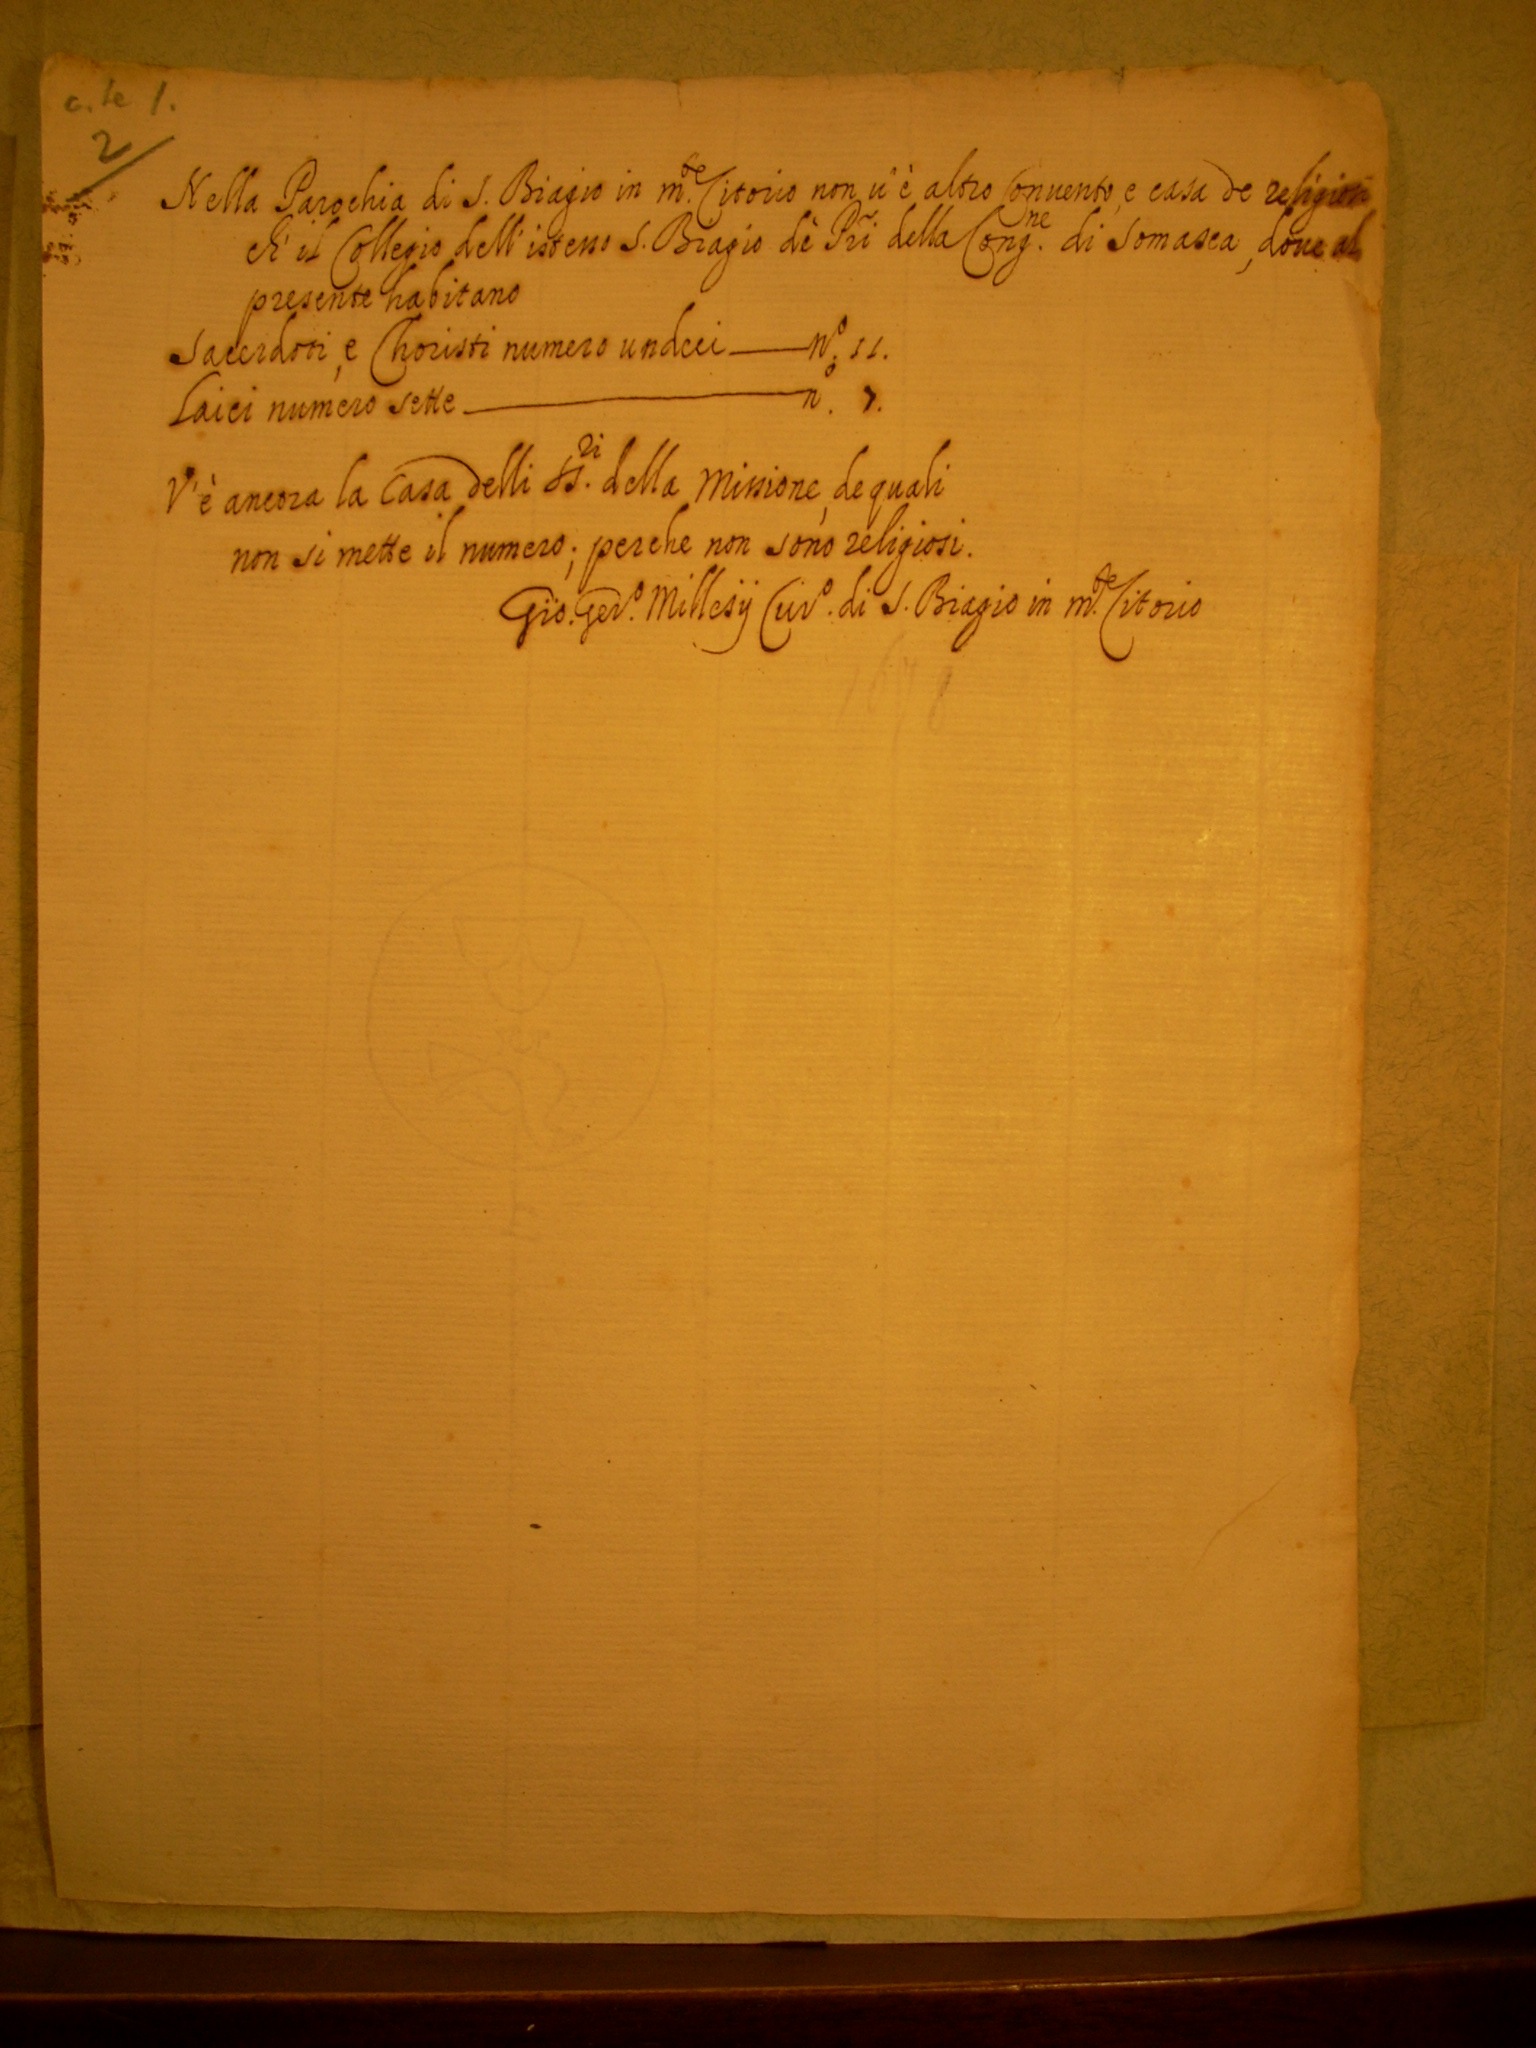 c. te 1.
2
Nella Parochia di S. Biagio in m.te Citorio non u'è altro Conuento, e casa de religiosi
ch' il Collegio dell' istesso S. Biagio dè Pri della Cong.ne di Somasca, doue al
presente habitano
Sacerdoti, e Choristi numero undeci — N.o 11.
Laici numero sette — n.o 7.
V'è ancora la Casa delli SS.ri della Missione, de quali
non si mette il numero; perche non sono religiosi.
Gio. Ger.o Millesij Cur.o di S. Biagio in m.te Citorio
1678